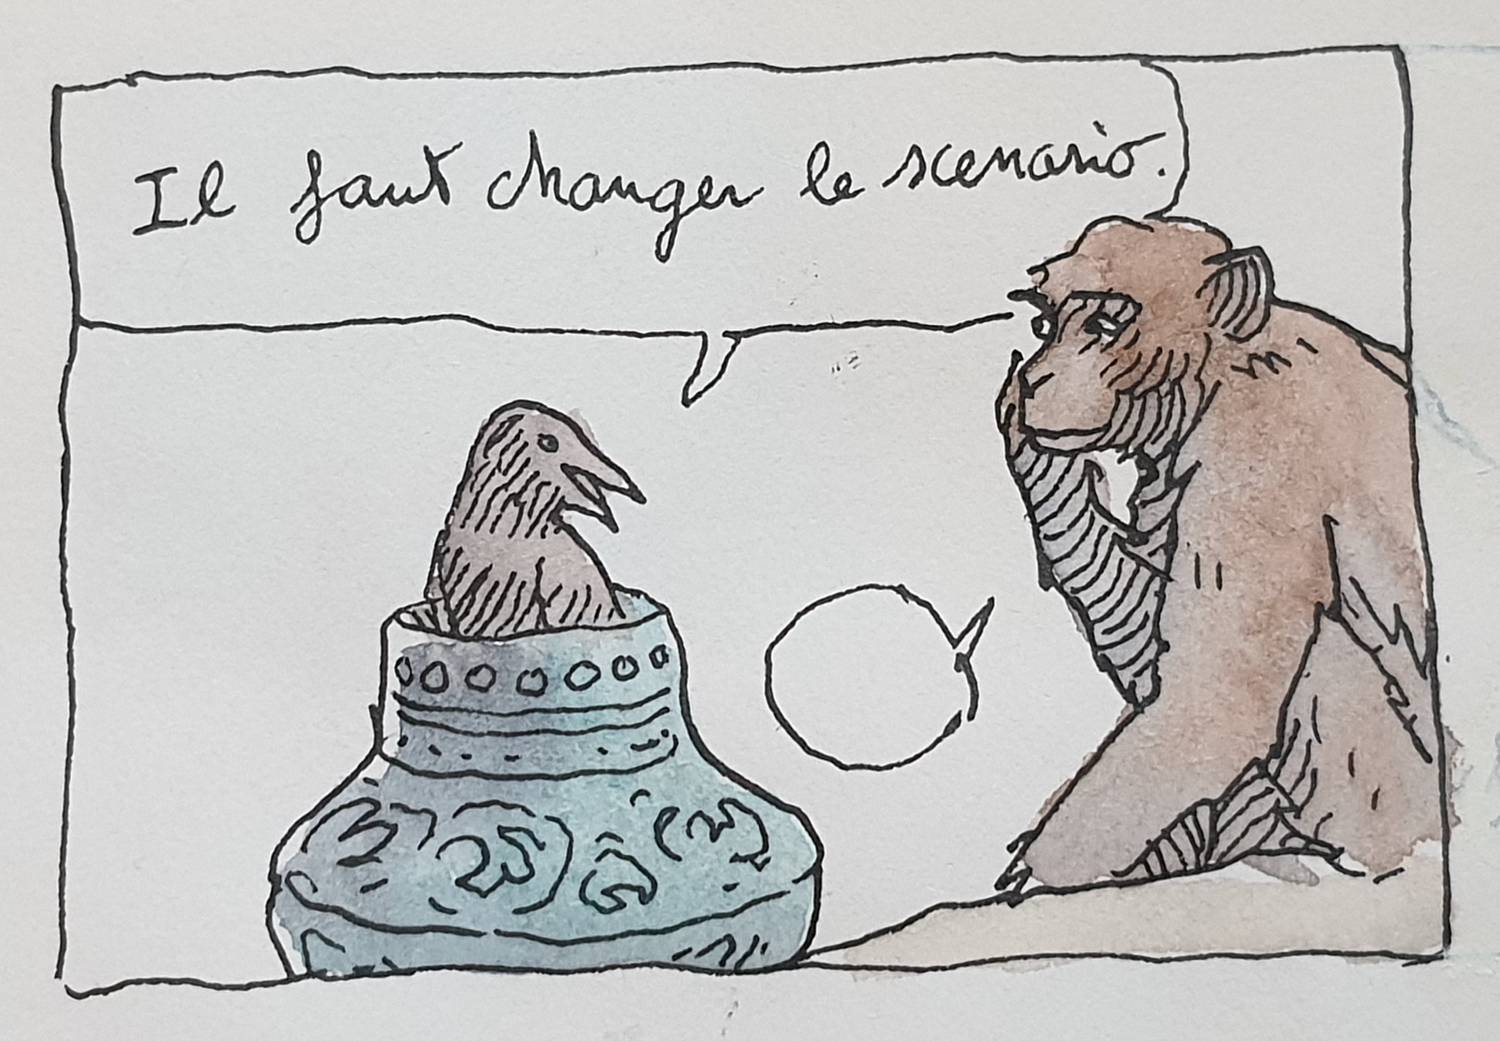 Il faut changer le scenario.